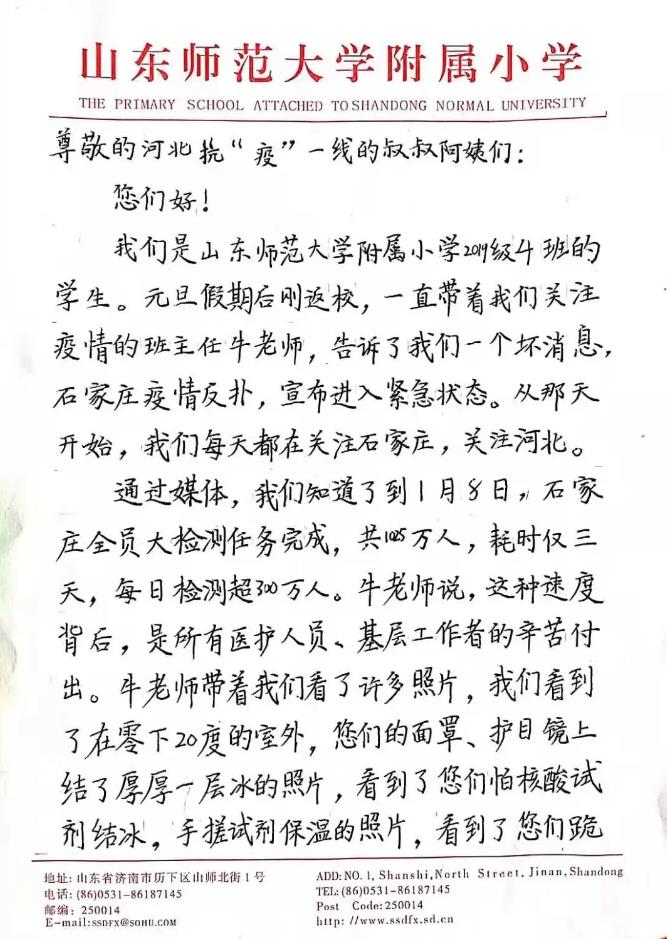 山东师范大学附属小学
THE PRIMARY SCHOOL ATTACHED TO SHANDONG NORMAL UNIVERSITY
尊敬的河北抗“疫”一线的叔叔阿姨们：
您们好！
我们是山东师范大学附属小学2019级4班的
学生。元旦假期后刚返校，一直带着我们关注
疫情的班主任牛老师，告诉了我们一个坏消息，
石家庄疫情反扑，宣布进入紧急状态。从那天
开始，我们每天都在关注石家庄，关注河北。
通过媒体，我们知道了到1月8日，石家
庄全员大检测任务完成，共1025万人，耗时仅三
天，每日检测超300万人。牛老师说，这种速度
背后，是所有医护人员、基层工作者的辛苦付
出。牛老师带着我们看了许多照片，我们看到
了在零下20度的室外，您们的面罩、护目镜上
结了厚厚一层冰的照片，看到了您们怕核酸试
剂结冰，手搓试剂保温的照片，看到了您们跪
地址：山东省济南市历下区山师北街1号
电话：(86)0531-86187145
邮编：250014
E-mail:SSDFX@SOHU.COM
ADD:NO.1, Shanshi,North Street, Jinan,Shandong
TEL:(86)0531-86187145
Post Code:250014
http://www.ssdfx.sd.cn